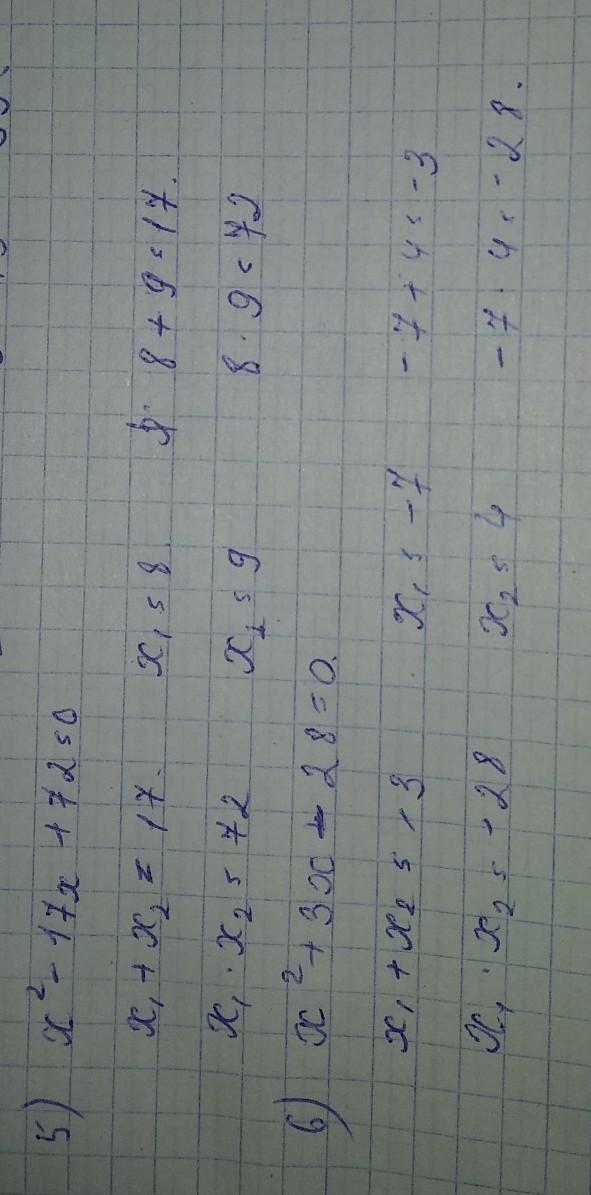 5) x² - 17x + 72 = 0
x₁ + x₂ = 17. x₁ = 8. 8 + 9 = 17.
x₁ · x₂ = 72 x₂ = 9 8 · 9 = 72
6) x² + 3x - 28 = 0.
x₁ + x₂ = -3 x₁ = -7 -7 + 4 = -3
x₁ · x₂ = -28 x₂ = 4 -7 · 4 = -28.